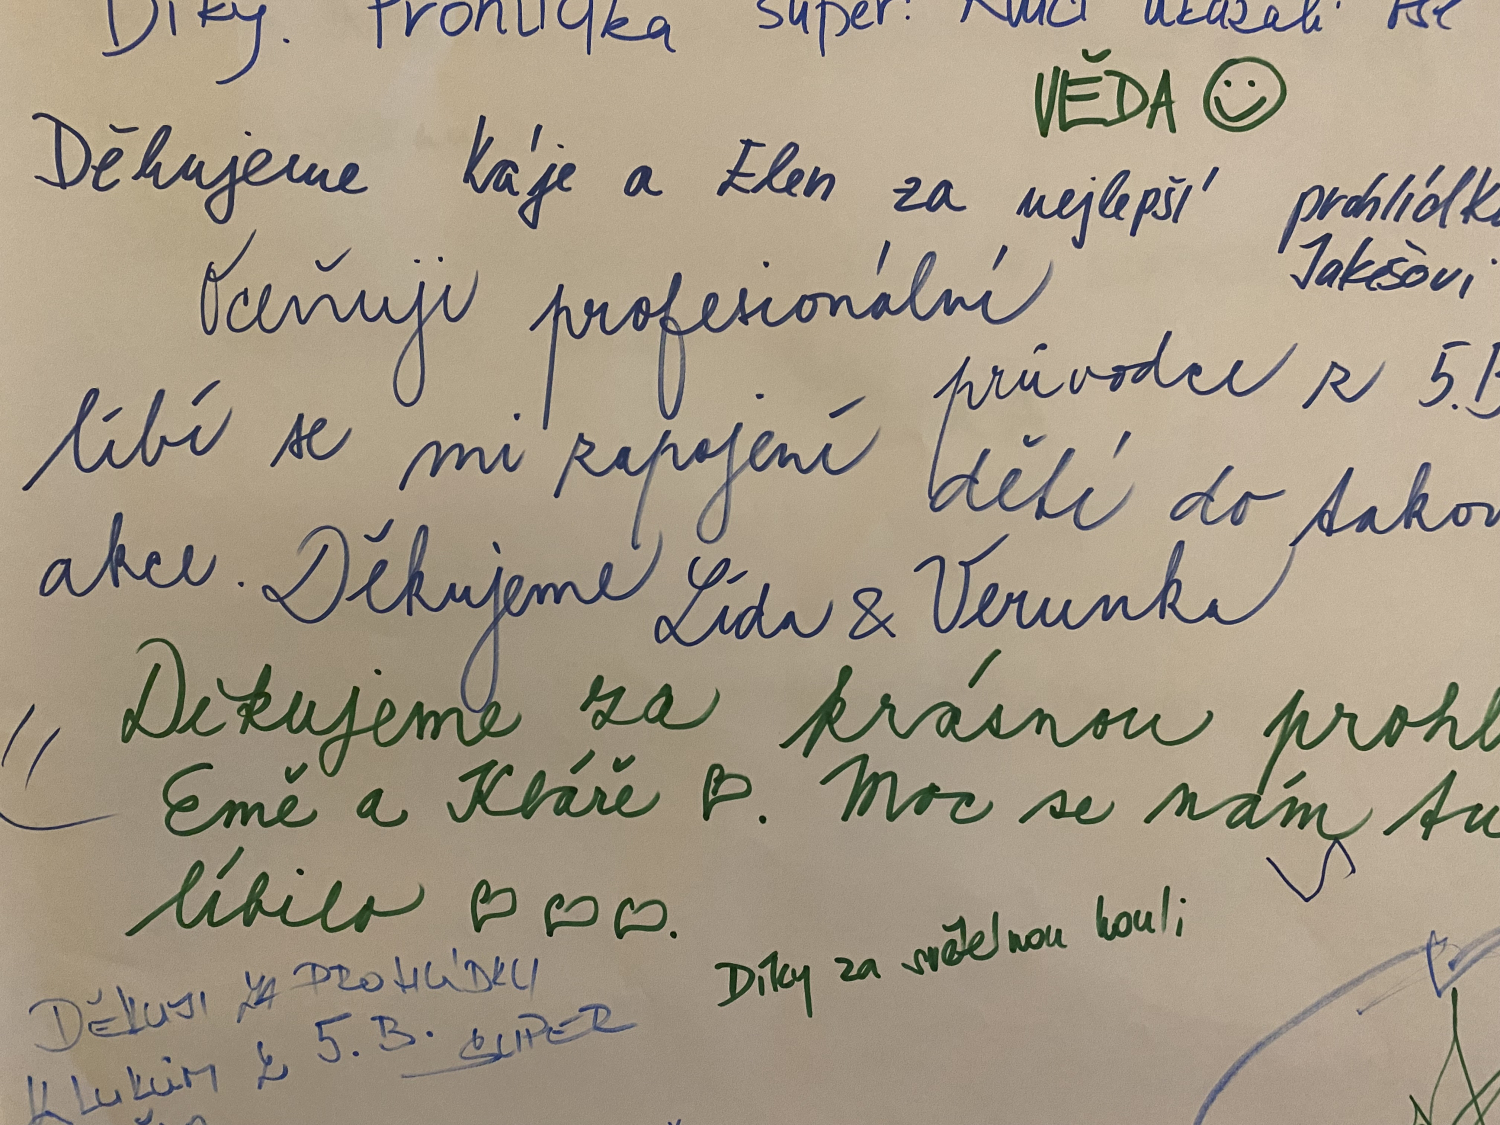 Díky. Prohlídka super!
VĚDA
Děkujeme Káje a Elen za nejlepší prohlídku
Jakešovi
Oceňuji profesionální
průvodce z 5.B
líbí se mi zapojení dětí do takov
akce. Děkujeme Lída & Verunka
Děkujeme za krásnou prohl
Emě a Kláře ♡. Moc se nám tu
líbilo ♡♡♡.
Díky za světelnou kouli
DĚKUJI ZA PROHLÍDKU
KLUKŮM Z 5.B. SUPER